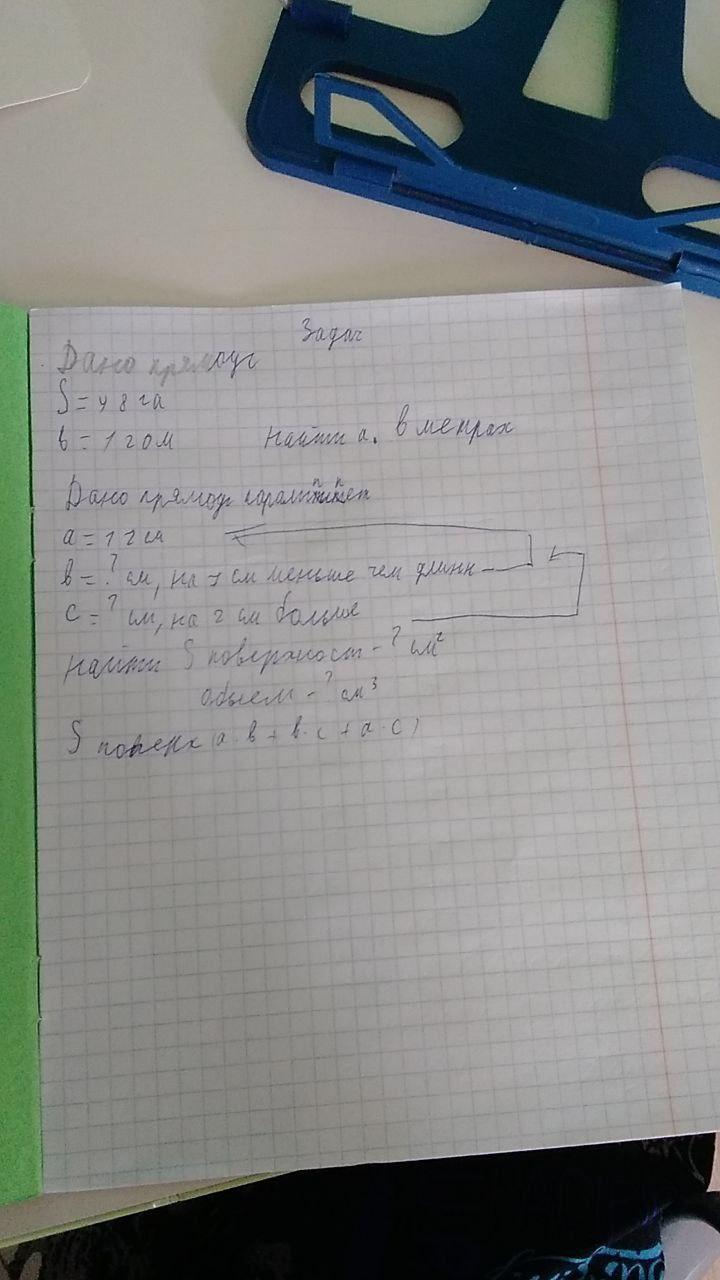 Задач
Дано прямоуг
S = 48 га
в = 120 м найти а. в метрах
Дано прямоуг
а = 12 см
в = ? см, на 7 см меньше чем длинн
с = ? см, на 2 см больше
найти S поверхност - ? см²
объем - ? см³
S поверх (а · в + в · с + а · с)